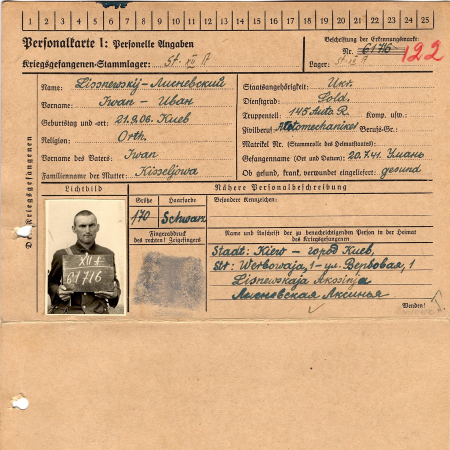 1 2 3 4 5 6 7 8 9 10 11 12 13 14 15 16 17 18 19 20 21 22 23 24 25
Personalkarte I: Personelle Angaben
Kriegsgefangenen-Stammlager: St. XII A
Beschriftung der Erkennungsmarke
Nr. 61716
122
Lager: St. XII A
Name: Lissnewskij - Лисневский
Vorname: Iwan - Иван
Geburtstag und -ort: 21.9.06. Киев
Religion: Orth.
Vorname des Vaters: Iwan
Familienname der Mutter: Kisseljowa
Staatsangehörigkeit: Ukr.
Dienstgrad: Sold.
Truppenteil: 148 Auto. R. Komp. usw.:
Zivilberuf: Automechaniker Berufs-Gr.:
Matrikel Nr. (Stammrolle des Heimatstaates):
Gefangennahme (Ort und Datum): 20.7.41. Умань
Ob gesund, krank, verwundet eingeliefert: gesund
Des Kriegsgefangenen
Lichtbild
Nähere Personalbeschreibung
Größe
Haarfarbe
Besondere Kennzeichen:
170
Schwarz
Fingerabdruck
des rechten! Zeigefingers
XII A
61716
Name und Anschrift der zu benachrichtigenden Person in der Heimat
des Kriegsgefangenen
Stadt: Kiew - город Киев,
Str: Werbowaja, 1 - ул. Вербовая, 1
Lisnewskaja Aksinja
Лисневская Аксинья
Wenden!